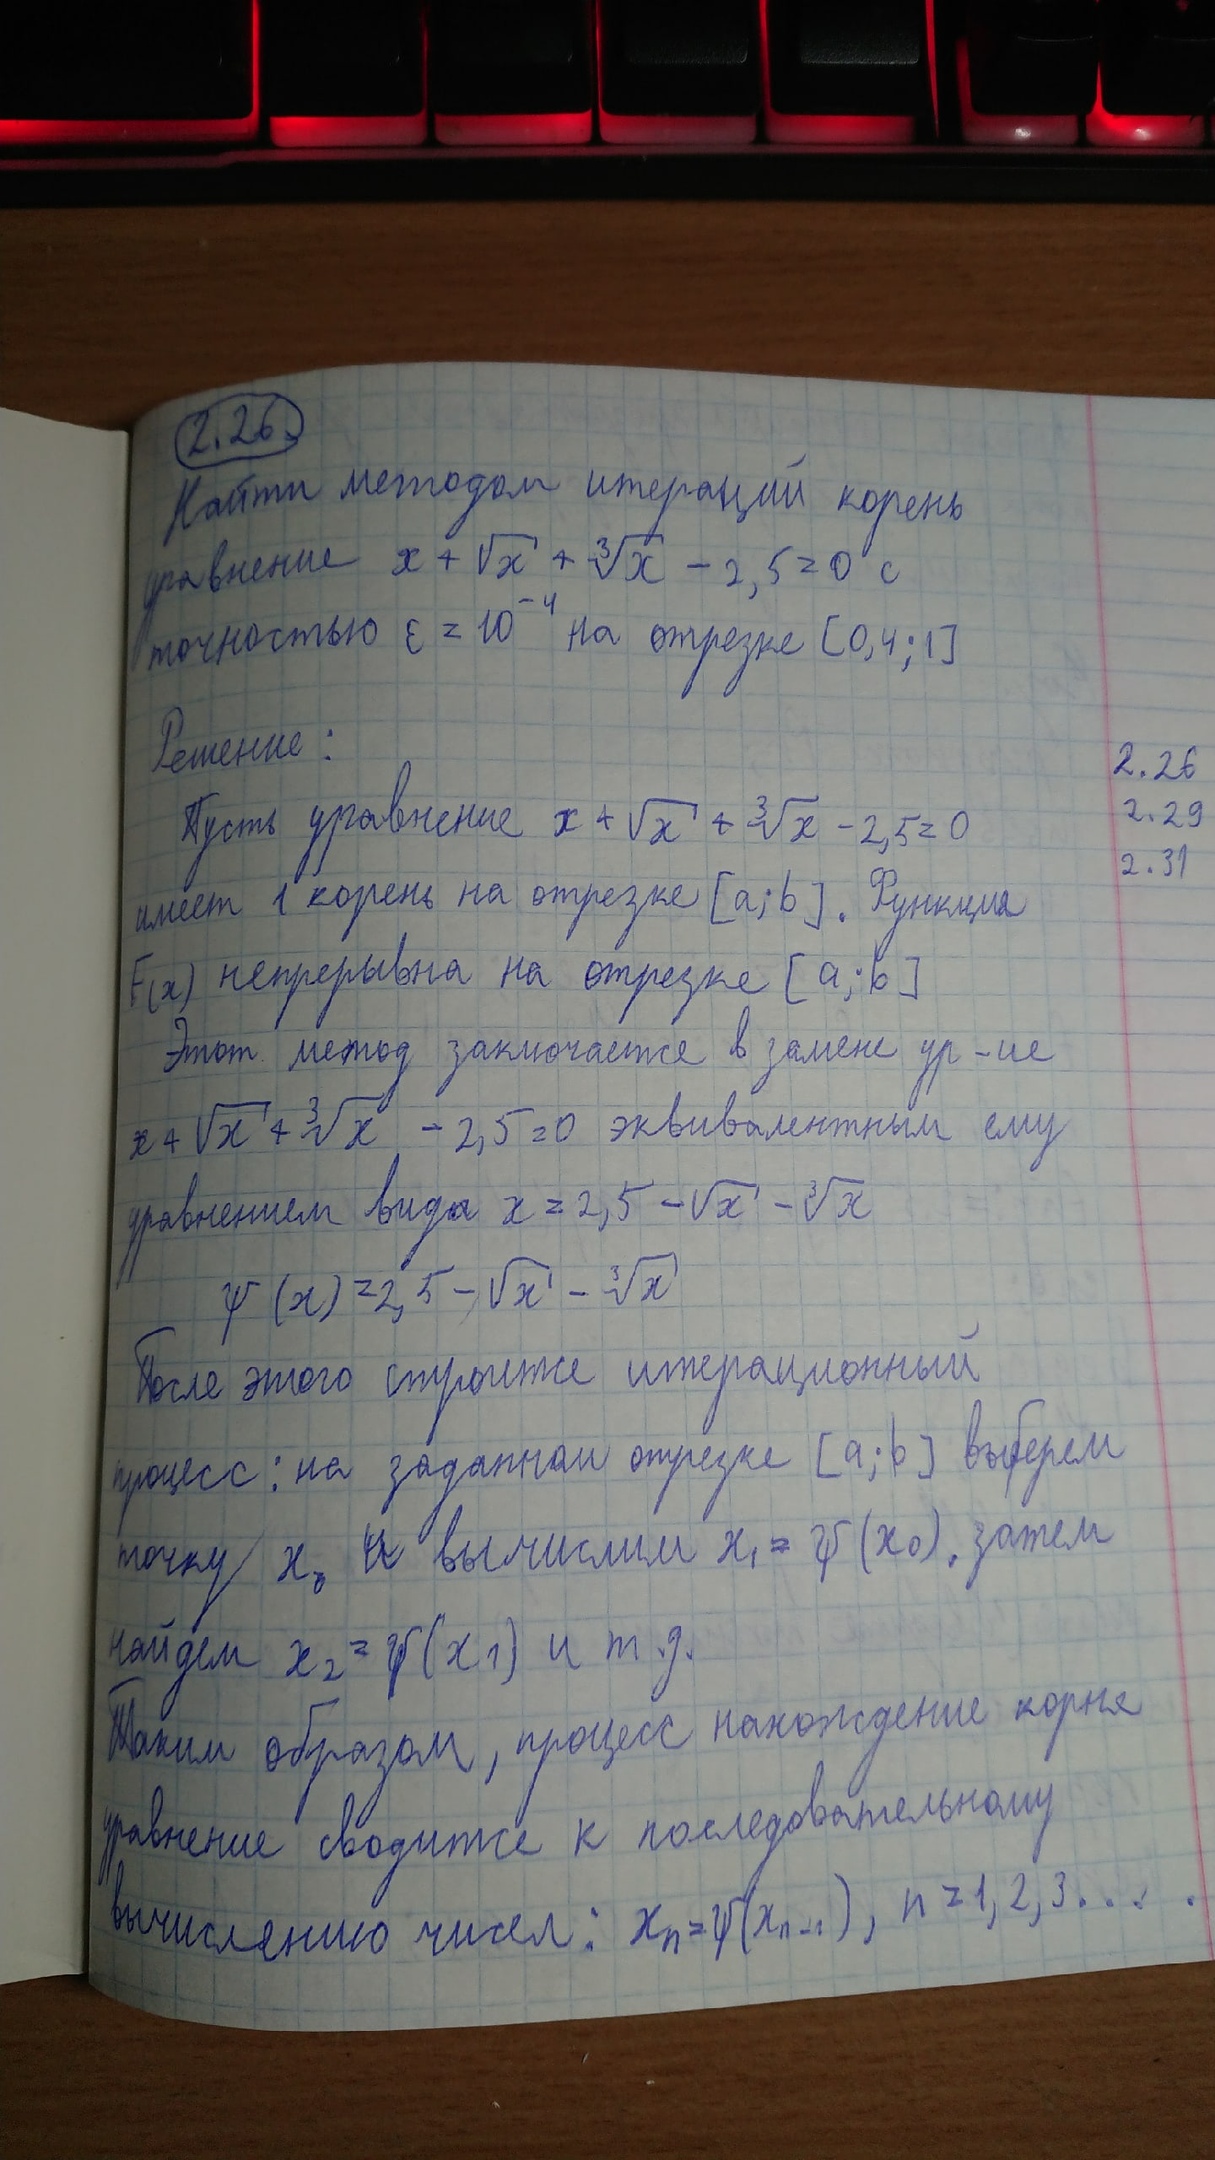 2.26.
Найти методом итераций корень
уравнение x + √x + ∛x - 2,5 = 0 с
точностью ε = 10⁻⁴ на отрезке [0,4; 1]
Решение:
Пусть уравнение x + √x + ∛x - 2,5 = 0
имеет 1 корень на отрезке [a; b]. Функция
F(x) непрерывна на отрезке [a; b]
Этот метод заключается в замене ур-ие
x + √x + ∛x - 2,5 = 0 эквивалентным ему
уравнением вида x = 2,5 - √x - ∛x
ψ(x) = 2,5 - √x - ∛x
После этого строится итерационный
процесс: на заданном отрезке [a; b] выберем
точку x₀ и вычислим x₁ = ψ(x₀), затем
найдем x₂ = ψ(x₁) и т.д.
Таким образом, процесс нахождение корня
уравнение сводится к последовательному
вычислению чисел: xₙ = ψ(xₙ₋₁), n = 1, 2, 3....
2.26
2.29
2.31